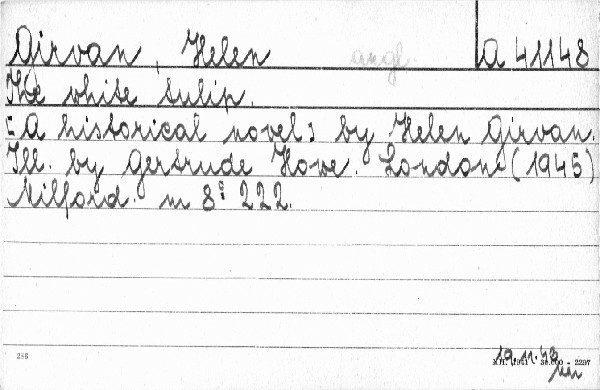 Girvan, Helen angl. A 41148
The white tulip.
[A historical novel] by Helen Girvan.
Ill. by Gertrude Howe. London (1945)
Milford. m 8° 222.
286 19.11.48